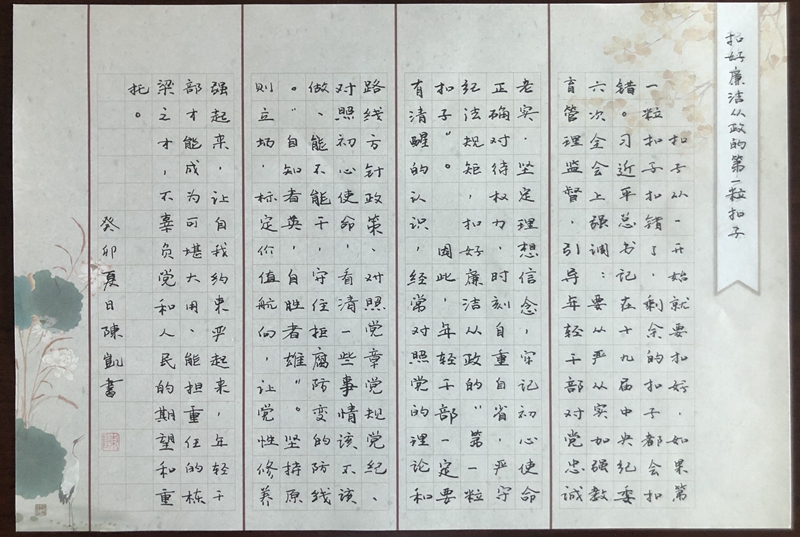 扣好廉洁从政的第一粒扣子
扣子从一开始就要扣好，如果第
一粒扣子扣错了，剩余的扣子都会扣
错。习近平总书记在十九届中央纪委
六次全会上强调：要从严从实加强教
育管理监督，引导年轻干部对党忠诚
老实，坚定理想信念，牢记初心使命
正确对待权力，时刻自重自省，严守
纪法规矩，扣好廉洁从政的“第一粒
扣子”。因此，年轻干部一定要
有清醒的认识，经常对照党的理论和
路线方针政策、对照党章党规党纪、
对照初心使命，看清一些事情该不该
做、能不能干，守住拒腐防变的防线
。“自知者英，自胜者雄”。坚持原
则立场，标定价值航向，让党性修养
强起来，让自我约束严起来，年轻干
部才能成为可堪大用、能担重任的栋
梁之才，不辜负党和人民的期望和重
托。
癸卯夏日陳凱書